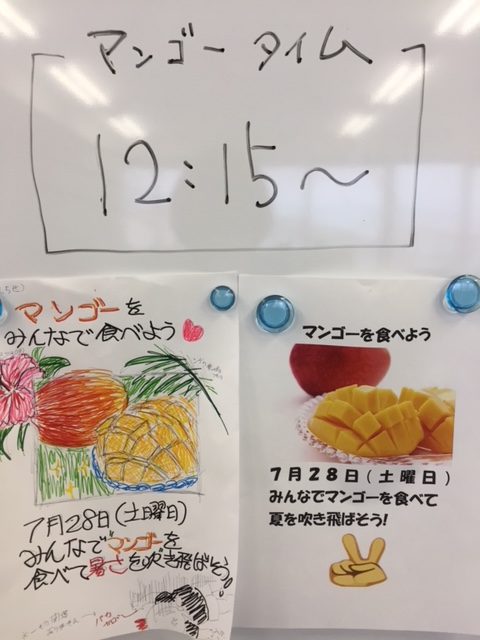 マンゴータイム
12:15～
マンゴーを
みんなで食べよう
7月28日(土曜日)
みんなでマンゴーを
食べて暑さを吹き飛ばそう!
マンゴーを食べよう
7月28日(土曜日)
みんなでマンゴーを食べて
夏を吹き飛ばそう!